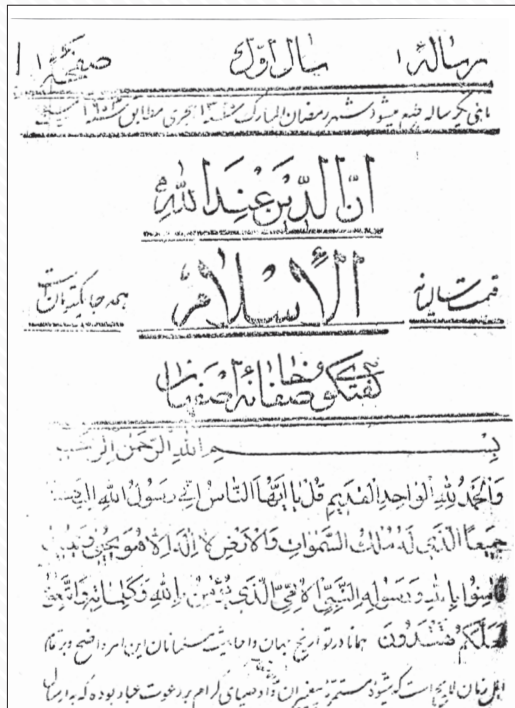 رسالهٔ ۱ سال اوّل صفحهٔ ۱
ماهی یکرساله طبع میشود شهر رمضان المبارک سنه هجری مطابق سنه
انّ الدّین عِندَ اللهِ
قیمت سالیانه الأسلام همه جا یکتومان است
گفتگوی صفاخانهٔ اصفهان
بِسمِ اللهِ الرَّحمنِ الرَّحیم
وَالحَمدُ لِلّهِ الواحِدِ القَدیمِ قُل یا اَیُّهَا النّاسُ اِنّی رَسولُ اللهِ اِلَیکُم
جَمیعاً الَّذی لَهُ مُلکُ السَّمواتِ وَالاَرضِ لا اِلهَ اِلّا هُوَ یُحیی وَیُمیتُ
فَامِنوا بِاللهِ وَرَسولِهِ النَّبیِّ الاُمِّیِّ الَّذی یُؤمِنُ بِاللهِ وَکَلِماتِهِ وَاتَّبِعوهُ
لَعَلَّکُم تَهتَدُونَ همانا در تواریخ جهان و احادیث مسلمانان این امر واضح و بر تمام
اهل زمان لایح است که شیوهٔ مستمرّهٔ پیغمبران و اوصیای گرام بر دعوت عباد بوده که به ارسال